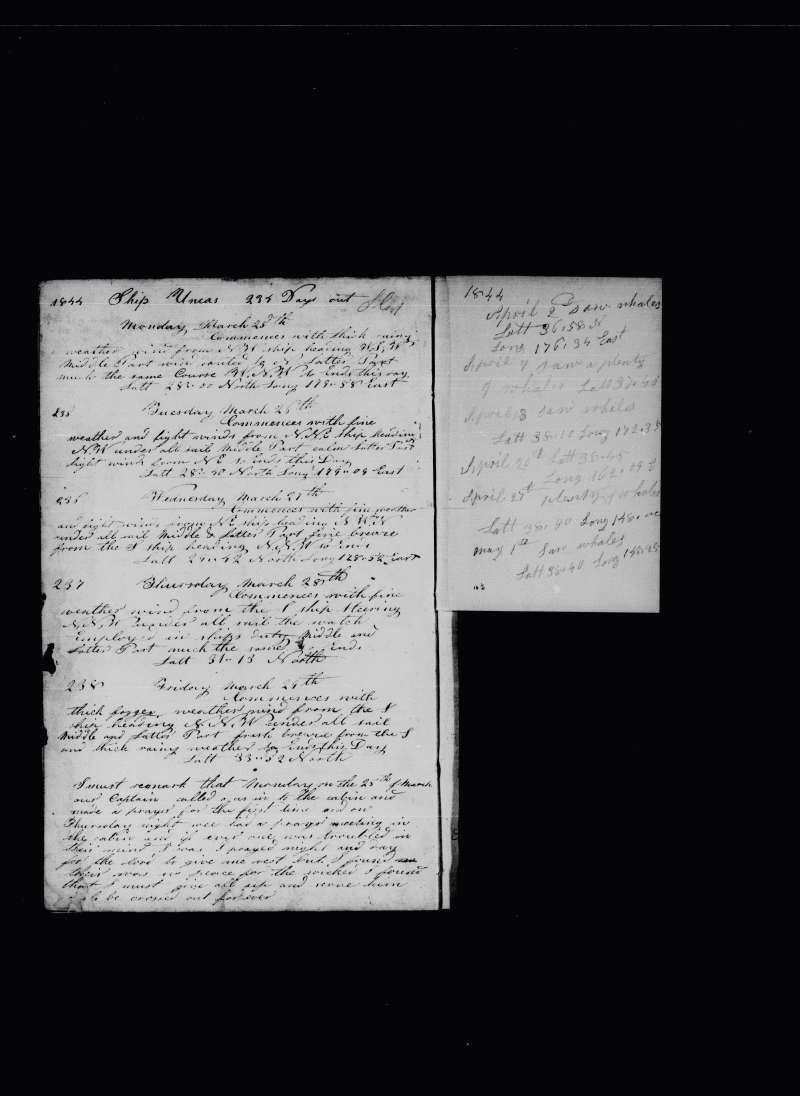 1844 Ship Uncas 234 Days out
Monday, March 25th
Commences with thick rainy
weather wind from N W ship heading
Middle Part wind Latter Part
much the same Course W.N.W So Ends this day
Latt 28-00 North Long 179-58 East
235 Tuesday March 26th
Commences with fine
weather and light winds from N.N.E ship heading
N.W under all sail Middle Part calm Latter Part
light wind from NE So Ends this Day
Latt 28-40 North Long 179-09 East
236 Wednesday March 27th
Commences with fine weather
and light winds from NE ship heading N W N
under all sail Middle & Latter Part fine breeze
from the S ship heading N.N.W So Ends
Latt 29-42 North Long East
237 Thursday March 28th
Commences with fine
weather wind from the S ship Steering
N.N.W under all sail the watch
Employed in ships duty Middle and
Latter Part much the same So Ends
Latt 31-13 North
238 Friday March 29th
Commences with
thick foggy weather wind from the S
ship heading N.N.W under all sail
Middle and Latter Part fresh breeze from the S
and thick rainy weather So Ends this Day
Latt 33-52 North
I must remark that Monday on the 25th of March
our Captain called us in to the cabin and
made a prayer for the first time and on
Thursday night wee had a prayer meeting in
the cabin and if ever one was troubled in
their mind I was I prayed night and day
for the lord to give me rest but I found
their was no peace for the wicked I found
that I must give all up and serve him
or be crossed out for ever
1844
April 2d Saw whales
Latt 36.58 N
Long 176.34 East
April 7 saw a plenty
of whales Latt 37-48
April 13 saw whales
Latt 38-10 Long 172.38
April 20t Latt 38-45
Long 162-19 E
April 27t plenty of whales
Latt 38-40 Long 148-
may 1st Saw whales
Latt 38-40 Long 148-28